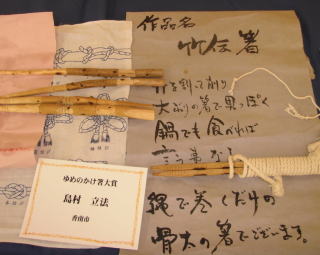 作品名
竹伝箸
竹を割って削り
大ぶりの箸で男っぽく
鍋でも食べれば
言う事なし
縄で巻くだけの
骨太の箸でございます。
ゆめのかけ箸大賞
島村 立法
香南市